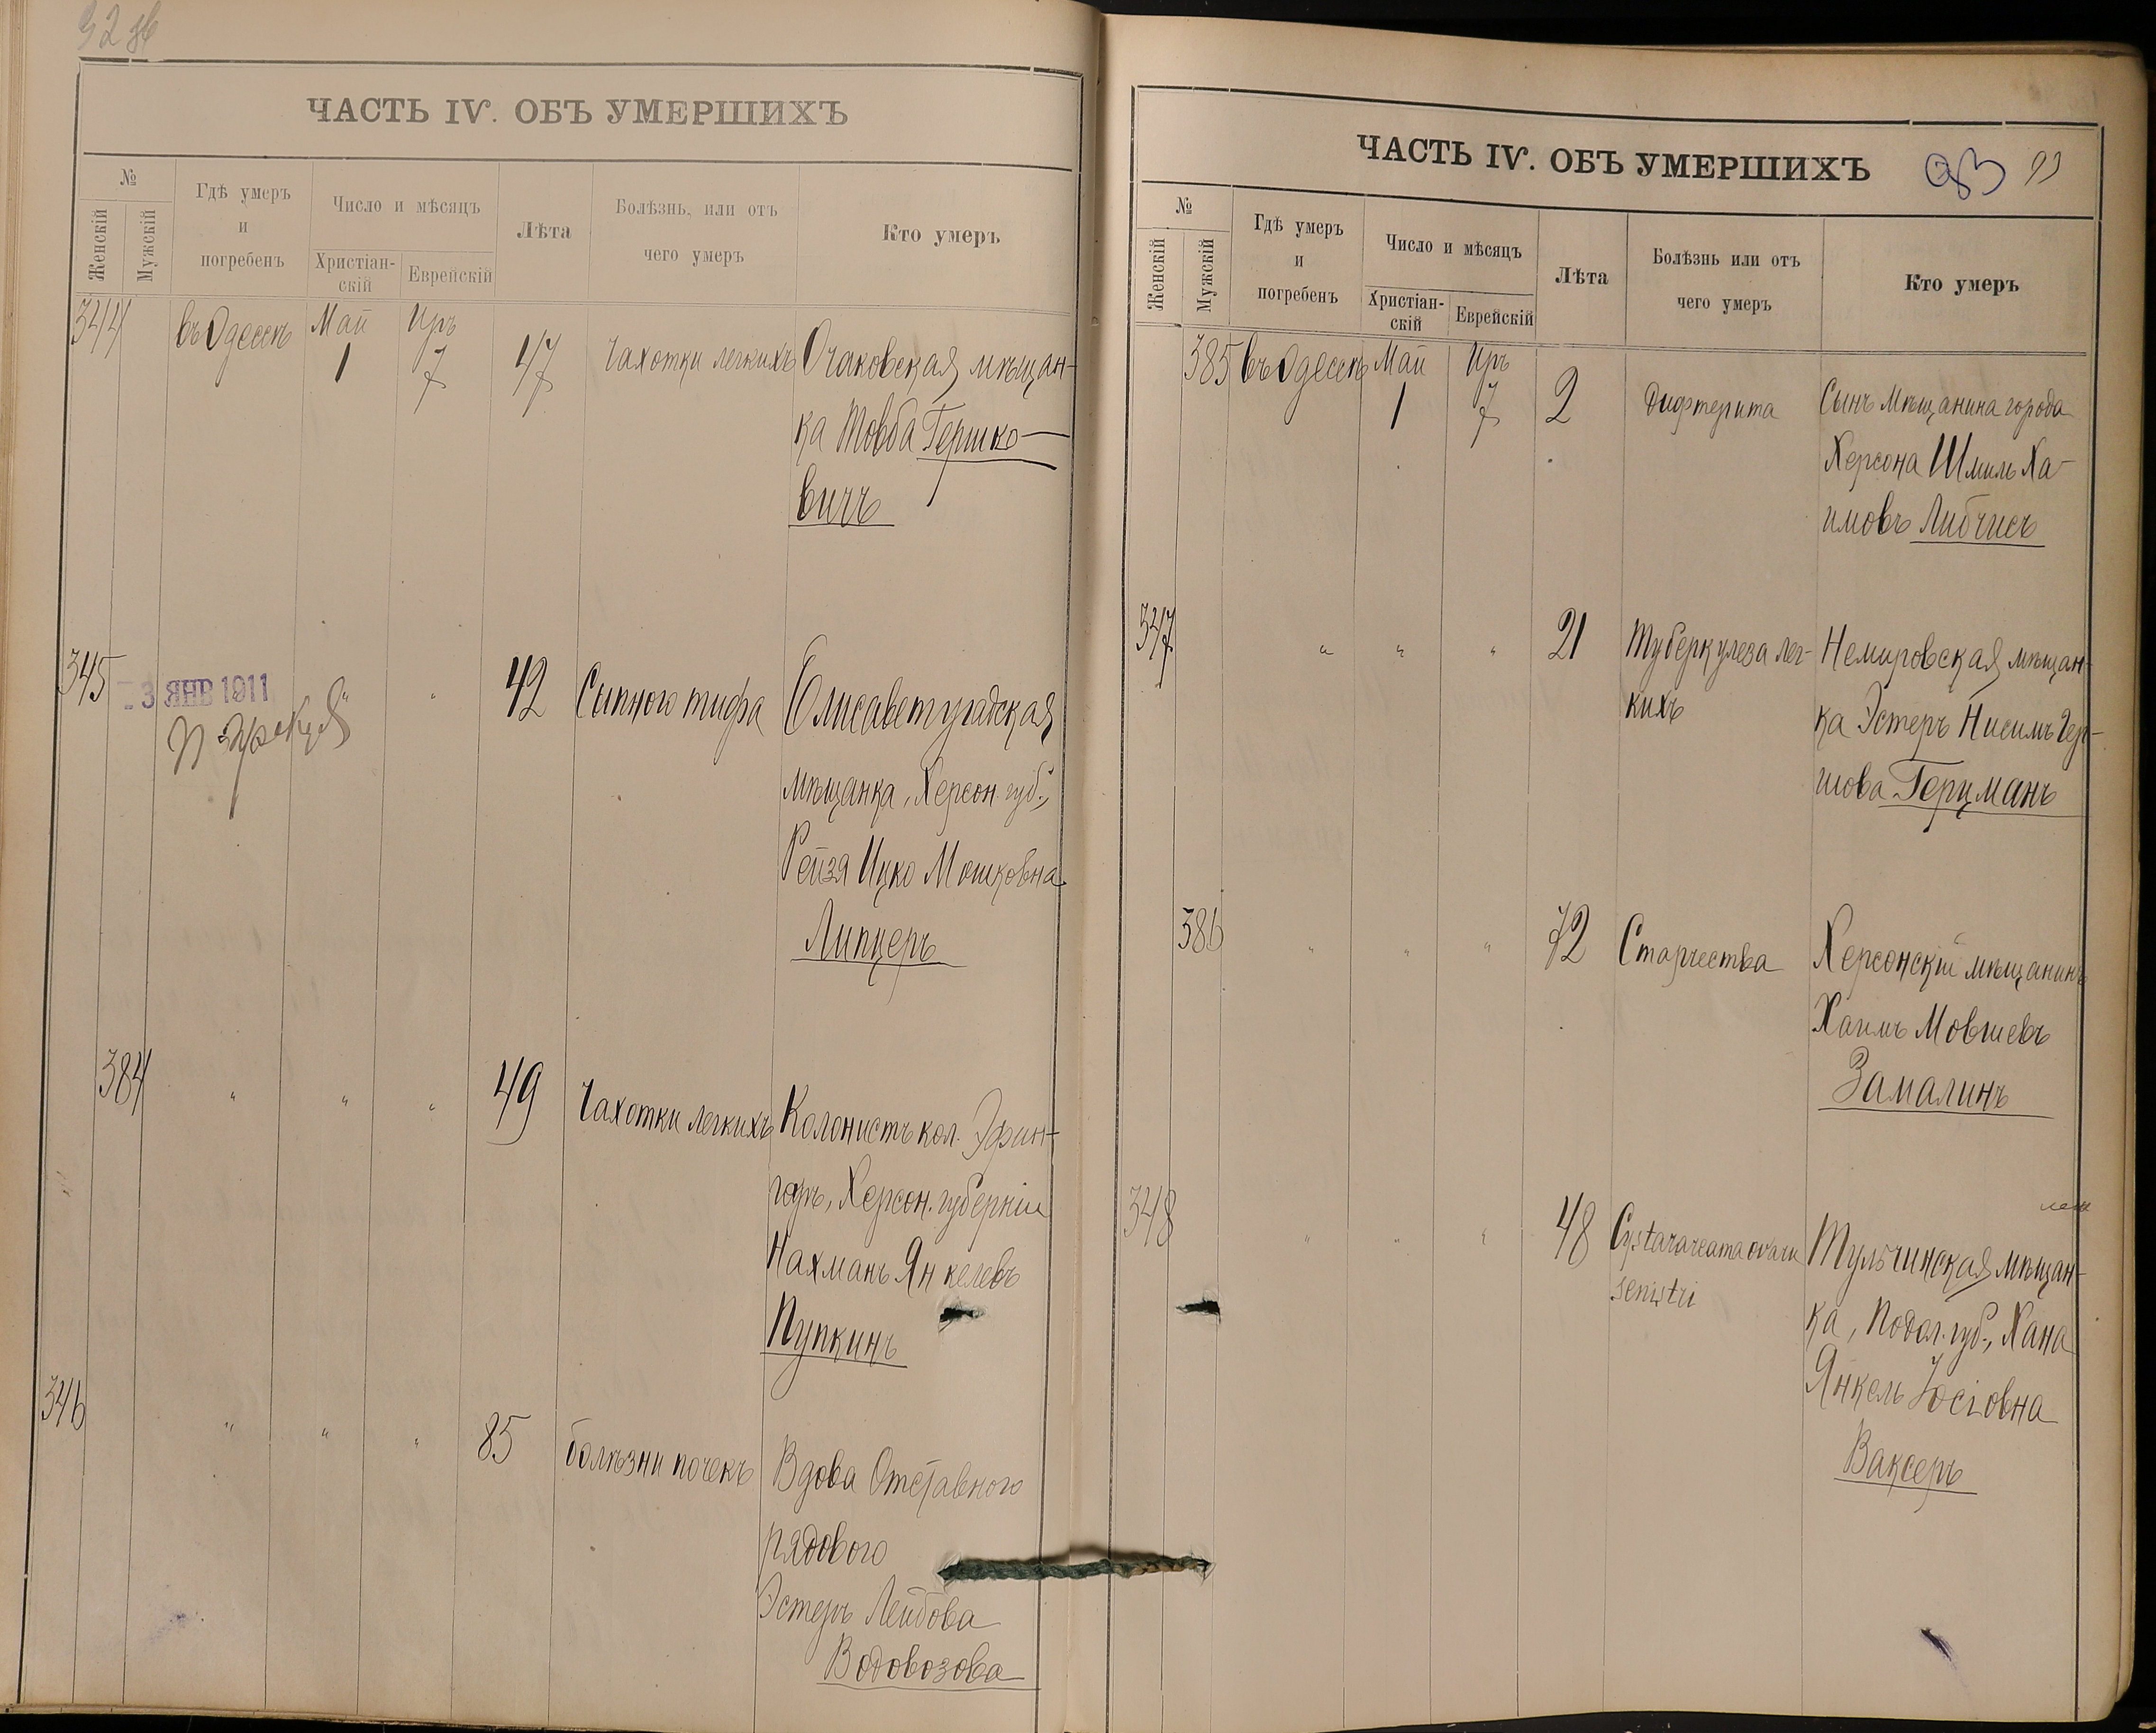 ЧАСТЬ IV. ОБЪ УМЕРШИХЪ
№
Женскій
Мужскій
Гдѣ умеръ
и
погребенъ
Число и мѣсяцъ
Христіан-
скій
Еврейскій
Лѣта
Болѣзнь, или отъ
чего умеръ
Кто умеръ
344 въ Одессѣ Май Иръ
1 7 47 Чахотки легкихъ Очаковская мѣщан-
ка Товба Гершко-
вичъ
345 3 ЯНВ 1911 " 42 Сыпного тифа Елисаветградская
мѣщанка, Херсон. губ.,
Рейзя Ицко Мошковна
Липцеръ
384 " " " 49 Чахотки легкихъ Колонистъ кол. Эфин-
гаръ, Херсон. губерніи
Нахманъ Янкелевъ
Пупкинъ
346 " " " 85 болѣзни почекъ Вдова Отставного
рядового
Эстеръ Лейбова
Водовозова
ЧАСТЬ IV. ОБЪ УМЕРШИХЪ 93 93
№
Женскій
Мужскій
Гдѣ умеръ
и
погребенъ
Число и мѣсяцъ
Христіан-
скій
Еврейскій
Лѣта
Болѣзнь или отъ
чего умеръ
Кто умеръ
385 въ Одессѣ Май Иръ
1 7 2 Дифтерита Сынъ мѣщанина города
Херсона Шмиль Ха-
имовъ Либчисъ
347 " " " 21 Туберкулеза лег- Немировская мѣщан-
кихъ ка Эстеръ Нисимъ Гер-
шова Герцманъ
386 " " " 72 Старчества Херсонскій мѣщанинъ
Хаимъ Мовшевъ
Замалинъ
348 " " " 48 Тульчинская мѣщан-
ка, Подол. губ., Хана
Янкель Іосіовна
Ваксеръ